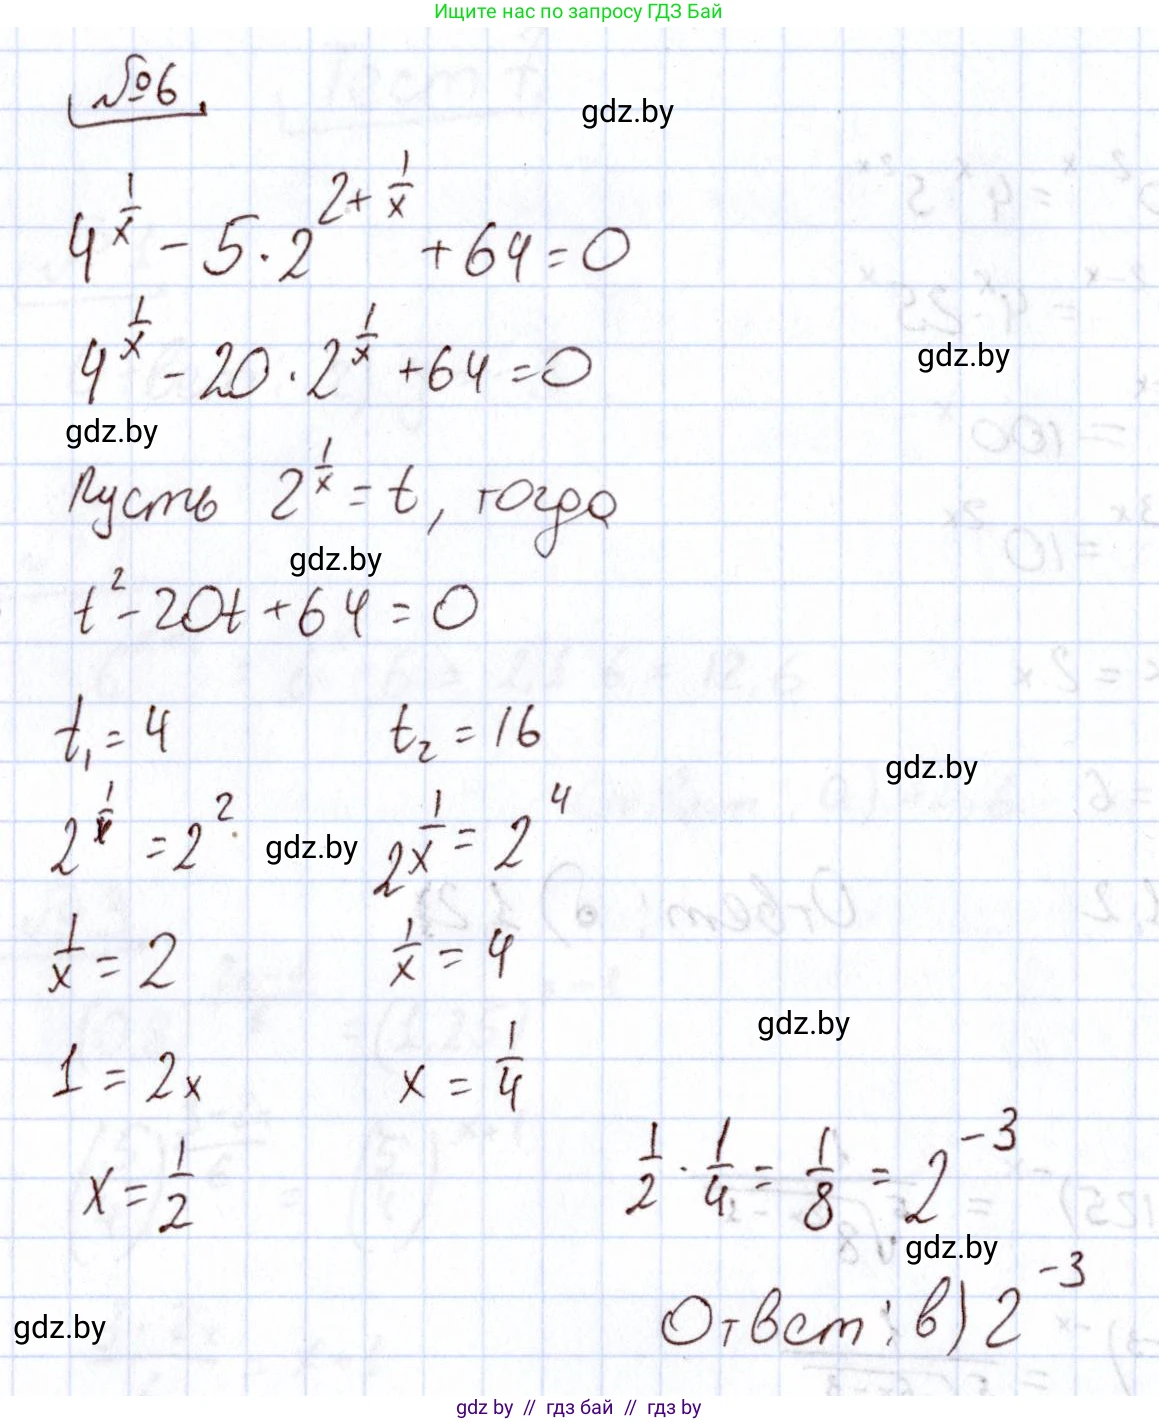 Ищите нас по запросу ГДЗ Бай
№6
gdz.by
4^(1/x) - 5·2^(2+1/x) + 64 = 0
4^(1/x) - 20·2^(1/x) + 64 = 0
gdz.by
gdz.by
Пусть 2^(1/x) = t, тогда
gdz.by
t² - 20t + 64 = 0
t₁ = 4 t₂ = 16
gdz.by
2^(1/x) = 2² gdz.by 2^(1/x) = 2⁴
1/x = 2 1/x = 4
gdz.by
1 = 2x x = 1/4
x = 1/2 1/2 · 1/4 = 1/8 = 2⁻³
gdz.by
gdz.by Ответ: в) 2⁻³
gdz by // гдз бай // gdz by